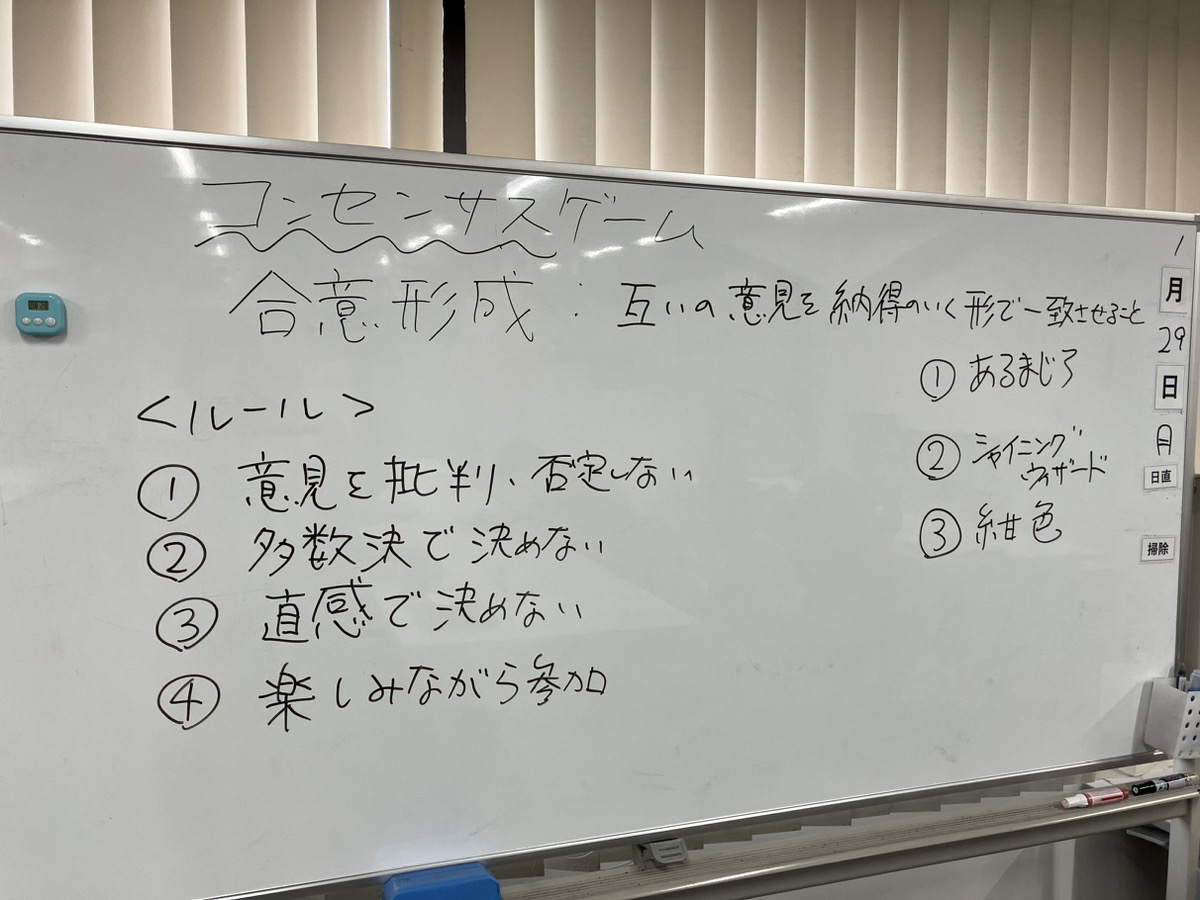 コンセンサスゲーム
合意形成：互いの意見を納得のいく形で一致させること
<ルール>
① 意見を批判、否定しない
② 多数決で決めない
③ 直感で決めない
④ 楽しみながら参加
① あるまじろ
② シャイニング
ウィザード
③ 紺色
1
月
29
日
月
日直
掃除